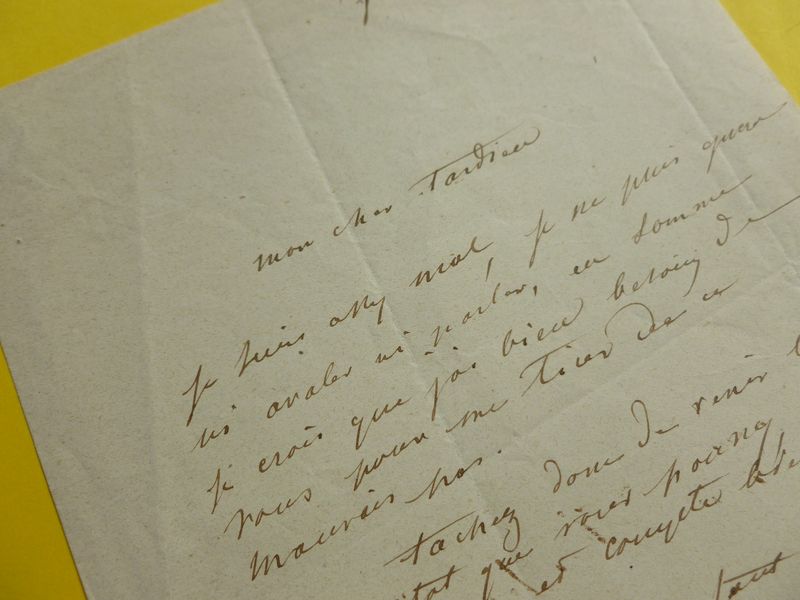 mon cher Tardieu
je suis assez mal, je ne puis quere
ni avaler ni parler, en somme
je crois que j'ai bien besoin de
vous pour me tirer de ce
mauvais pas.
tachez donc de venir
tot que vous pourrez
et compte
tout